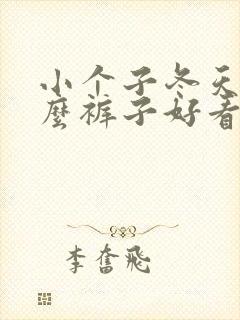 小个子冬天
麼裤子好看
李奮飛